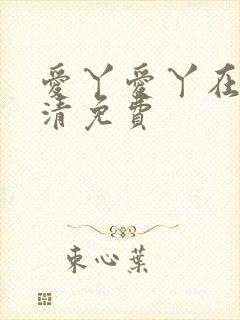 愛丫愛丫在
清免費
束心葉